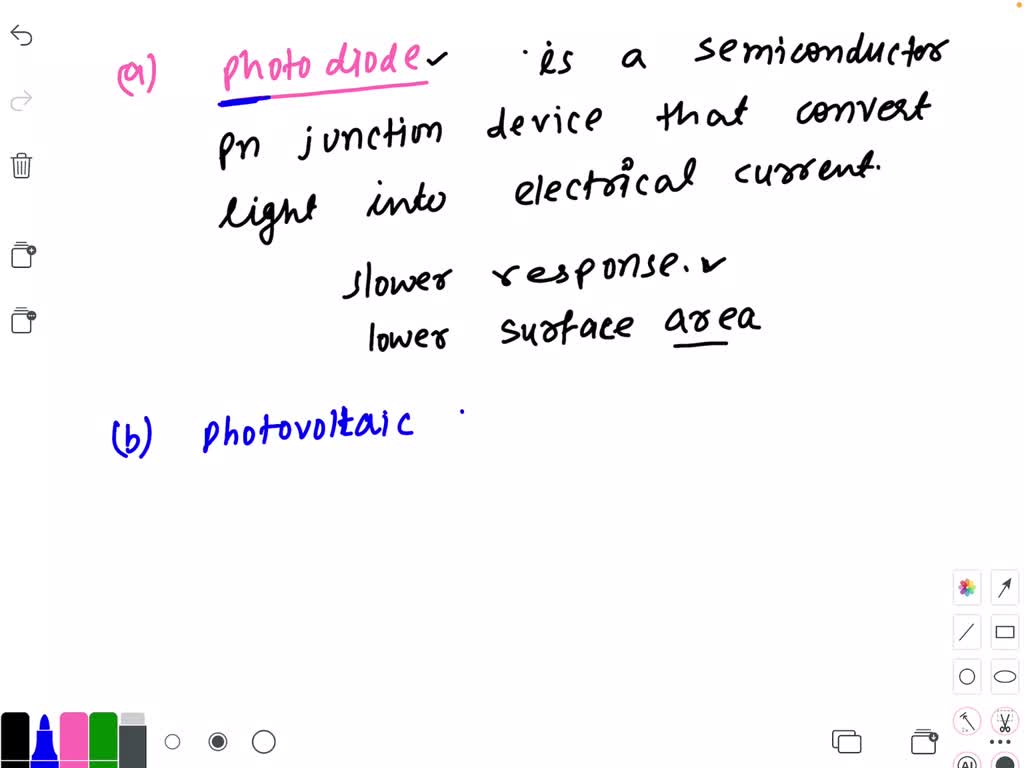 (a) photo diode is a semiconductor
pn junction device that convert
light into electrical current.
slower response.
lower surface area
(b) photovoltaic